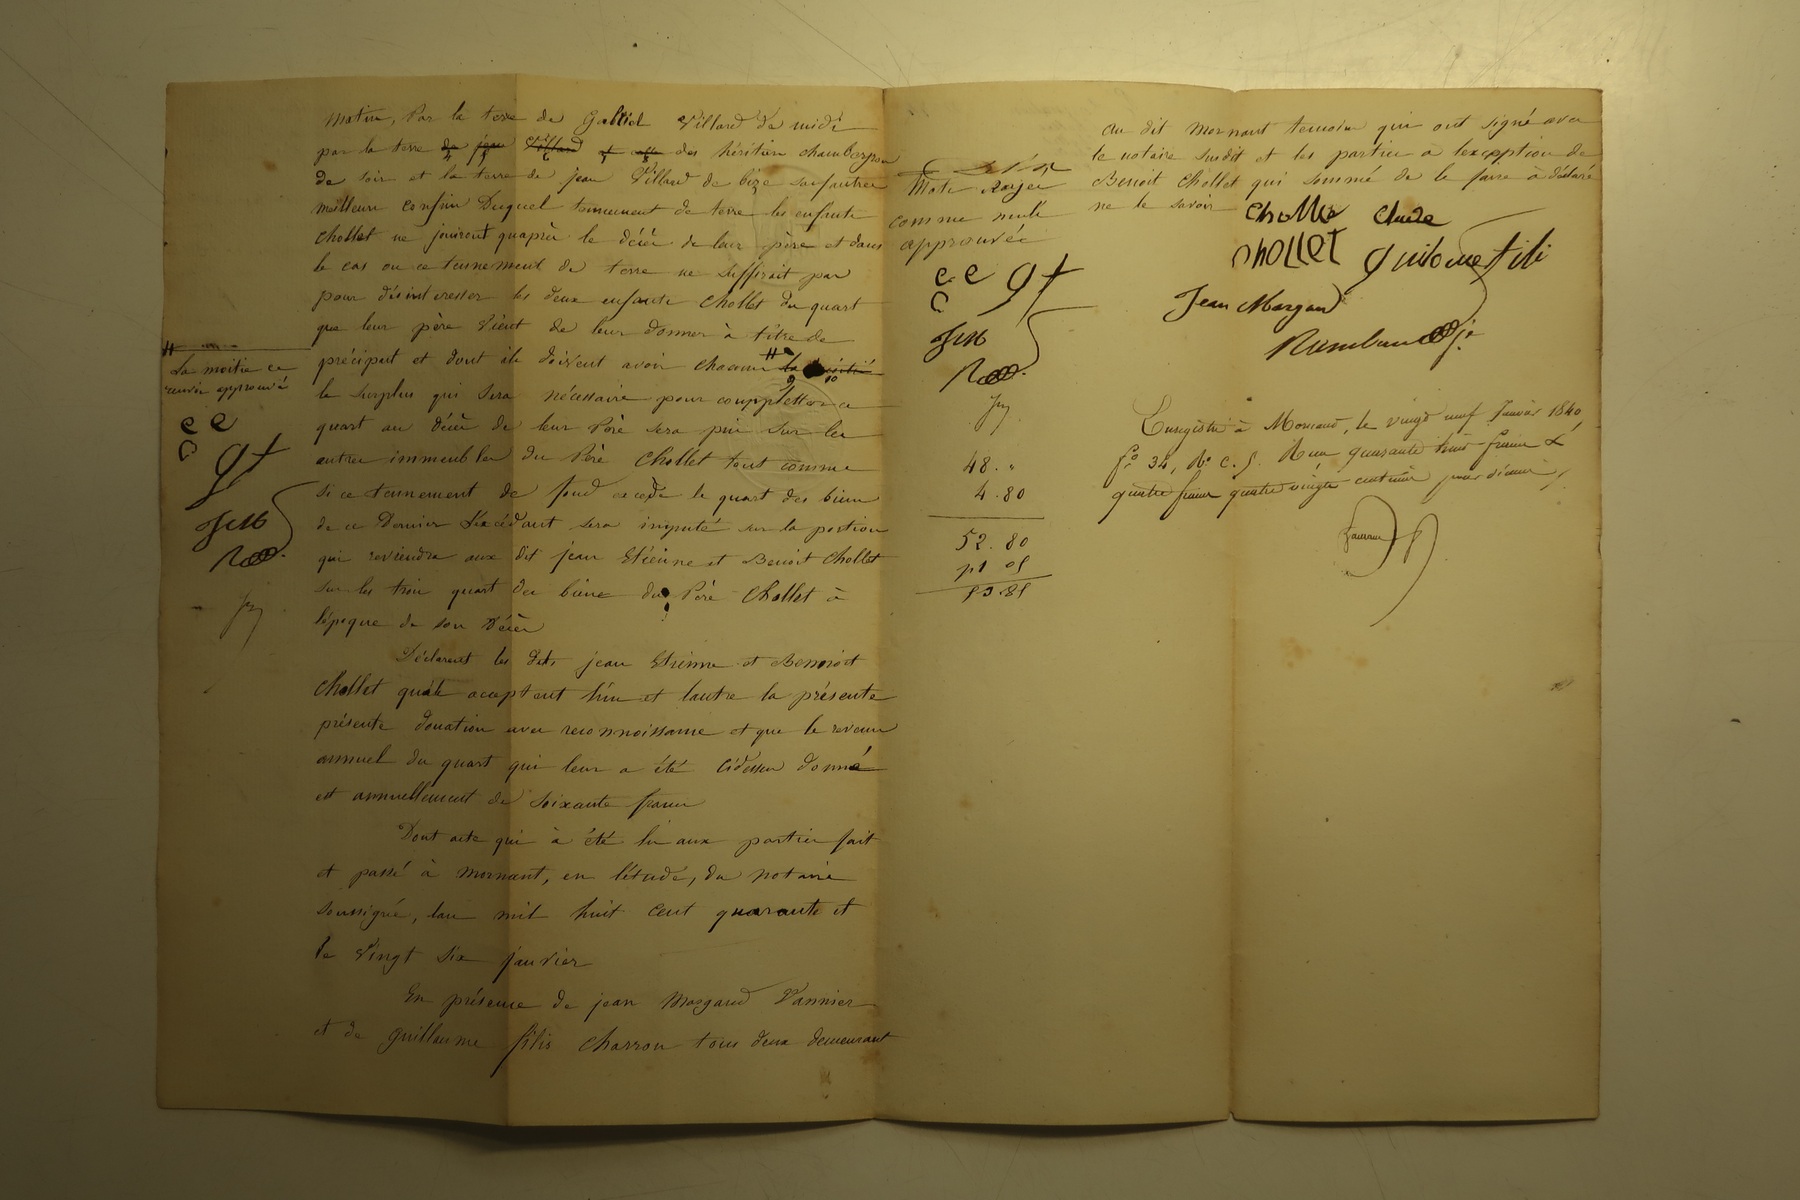 matin, Par la terre de Gabriel Villard de midi
par la terre de jean Villard et des héritier chamberpon
de soir et la terre de jean Villard de bize sauf autre
meilleur confin Duquel tennement de terre les enfants
Chollet ne jouiront quaprès le décés de leur père et dans
le cas ou ce tennement de terre ne suffirait pas
pour désinteresser les deux enfants Chollet du quart
que leur père vient de leur donner à titre de
préciput et dont ils doivent avoir chacun la moitié
le surplus qui sera nécessaire pour completter ce
quart au décés de leur Père sera pris sur les
autres immeubles du Père Chollet tout comme
si ce tennement de fond excède le quart des biens
de ce Dernier L'excédant sera imputé sur la portion
qui reviendra aux dit jean Etienne et Benoit Chollet
sur les trois quart des biens du Père Chollet à
l'époque de son décès
Déclarent les dits jean Etienne et Benoit
Chollet quils acceptent l'un et lautre la présente
présente donation avec reconnoissance et que le revenu
annuel du quart qui leur a été cidessus donné
est annuellement de soixante francs
Dont acte qui à été lu aux parties fait
et passé à mornant, en l'étude, du notaire
soussigné, lan mil huit cent quarante et
le vingt six janvier
En présence de jean Margand Vannier
et de guillaume filis charron tous deux demeurant
#
La moitié ce
renvoi approuvé
c c
c
gf
JM
Mots Rayer
comme nuls
approuvée
c c gf
c
JM
48. "
4.80
52.80
au dit Mornant temoins qui ont signé avec
le notaire susdit et les parties a lexception de
Benoit Chollet qui sommé de le faire a déclaré
ne le savoir
Chollet Claude
Chollet guilaume fili
Jean Margand
Enregistré à Mornant, le vingt neuf Janvier 1840,
fo 34, Ro c. 5. Reçu quarante huit francs &
quatre francs quatre vingts centimes pour décime